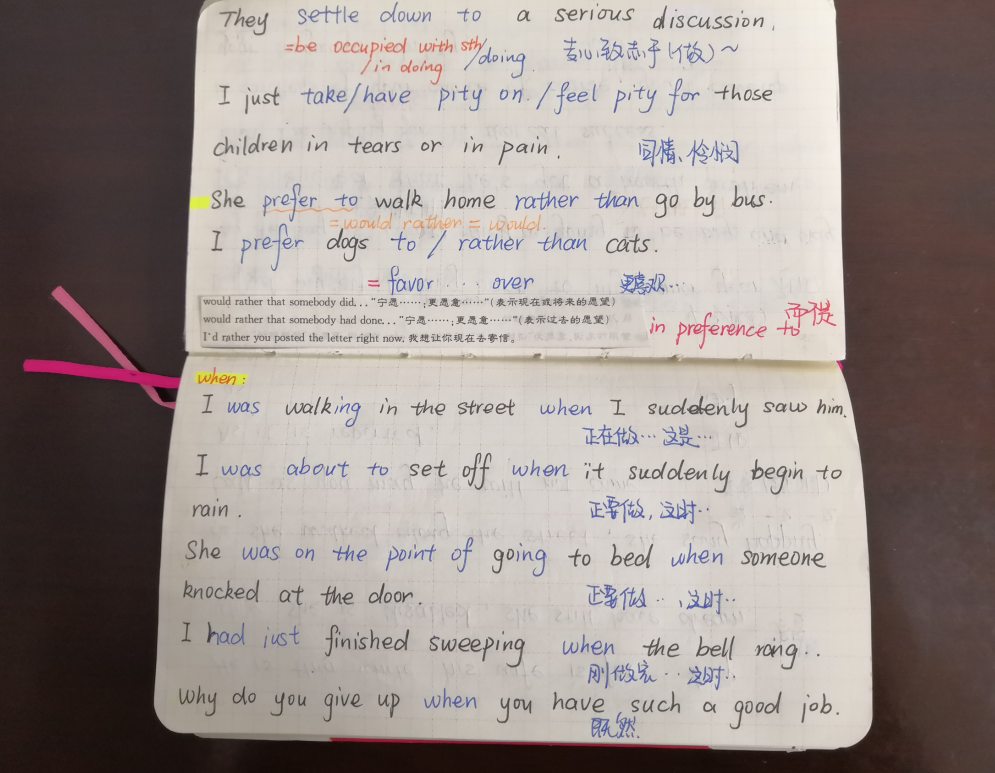 They settle down to a serious discussion.
=be occupied with sth/doing 专心致志于(做)~
/in doing
I just take/have pity on /feel pity for those
children in tears or in pain. 同情、怜悯
She prefer to walk home rather than go by bus.
=would rather = would.
I prefer dogs to / rather than cats.
= favor ··· over 更喜欢···
would rather that somebody did..."宁愿……;更愿意……"(表示现在或将来的愿望)
would rather that somebody had done..."宁愿……;更愿意……"(表示过去的愿望)
I'd rather you posted the letter right now. 我想让你现在去寄信。
in preference to 而不是
when:
I was walking in the street when I suddenly saw him.
正在做··· 这是···
I was about to set off when it suddenly begin to
rain. 正要做,这时··
She was on the point of going to bed when someone
knocked at the door. 正要做··,这时··
I had just finished sweeping when the bell rang..
刚做完··这时··
why do you give up when you have such a good job.
既然